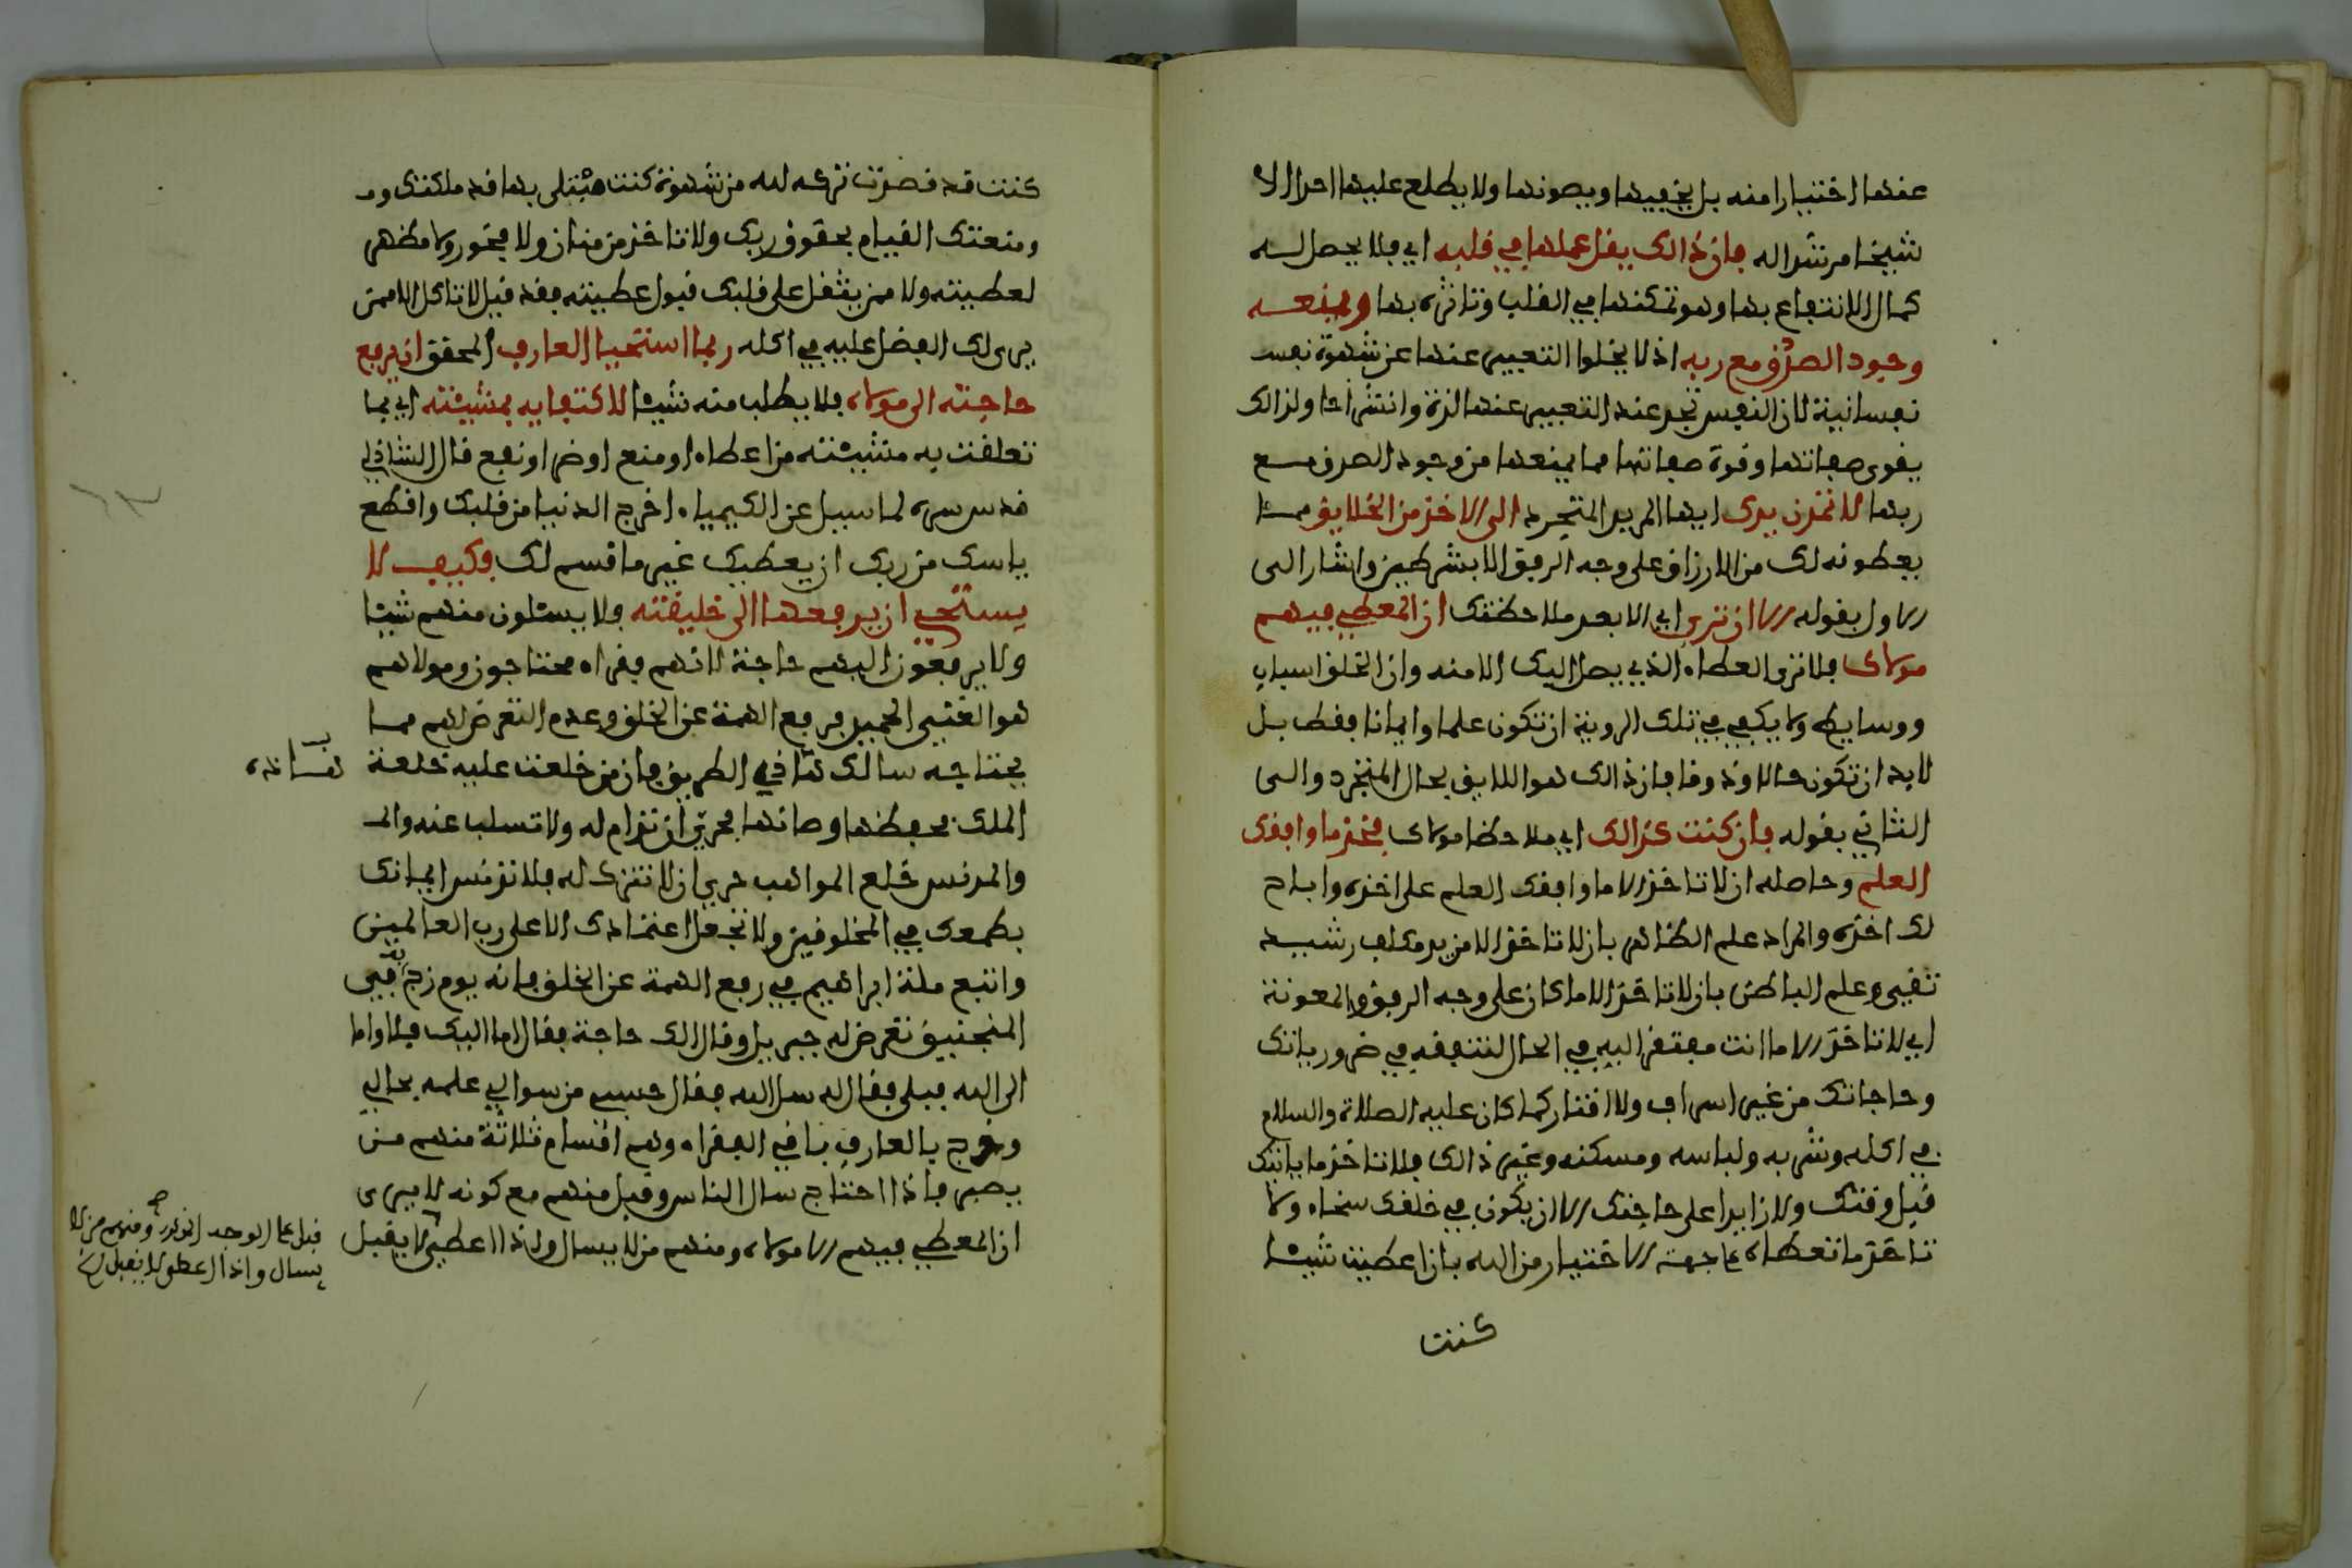 عنها اختيارا منه بل يخفيها ويصونها ولا يطلع عليها احدا الا
شيخا مرشدا له فان ذالك يقل عملها في قلبه اي فلا يحصل له
كمال الانتفاع بها وهو تمكنها في القلب وتاثره بها ويمنعه
وجود الصدق مع ربه اذ لا يخلوا التعبير عنها عن شهوة نفس
نفسانية لان النفس تجد عند التعبير عنها لذة وانتشراحا ولذالك
يقوى صفاتها وقوة صفاتها مما يمنعها من وجود الصدق مع
ربها لا تمدن يدك ايها المريد المتجرد الى الاخذ من الخلايق مما
يعطونه لك من الارزاق على وجه الرفق الا بشرطين واشار الى
الاول بقوله الا ان ترى اي الا بعد ملاحظتك ان المعطي فيهم
مولاك فلا ترى العطاء الذي يصل اليك الا منه وان الخلق اسباب
ووسايط ولا يكفي في تلك الروية ان تكون علما وايمانا فقط بل
لا بد ان تكون حالا وذوقا فان ذالك هو اللايق بحال المتجرد والى
الثاني بقوله فان كنت كذالك اي ملاحظا مولاك فخذ ما وافقك
العلم وحاصله ان لا تاخذ الا ما وافقك العلم على اخذه واباح
لك اخذه والمراد علم الظاهر بان لا تاخذ الا من يد مكلف رشيد
تقي وعلم الباطن بان لا تاخذ الا ما كان على وجه الرفق والمعونة
اي لا تاخذ الا ما انت مفتقر اليه في الحال لتنفقه في ضرورياتك
وحاجاتك من غير اسراف ولا اقتار كما كان عليه الصلاة والسلام
في اكله وشربه ولباسه ومسكنه وغير ذالك فلا تاخذ ما ياتيك
قبل وقتك ولا زايدا على حاجتك الا ان يكون في خلقك سخاء ولا
تاخذ ما تعطاه على جهة الاختيار من الله بان اعطيت شيئا
كنت
كنت قد قصدت تركه لله من شهوة كنت مبتلى بها قد ملكتك و
ومنعتك القيام بحقوق ربك ولا تاخذ من منان ولا فخور ولا مظهر
لعطيته ولا ممن يثقل على قلبك قبول عطيته فقد قيل لا تاكل الا ممن
يرى لك الفضل عليه في اكله ربما استحيا العارف المحقق ان يرفع
حاجته الى مولاه فلا يطلب منه شيئا لاكتفايه بمشيئته اي بما
تعلقت به مشيئته من اعطاء او منع او ضر او نفع قال الشاذلي
قدس سره لما سيل عن الكيمياء اخرج الدنيا من قلبك واقطع
ياسك من ربك ان يعطيك غير ما قسم لك وكيف لا
يستحيي ان يرفعها الى خليقته ولا يسئلون منهم شيئا
ولا يرفعون اليهم حاجة لانهم فقراء محتاجون ومولاهم
هو الغني الحميد فرفع الهمة عن الخلق وعدم التعرض لهم مما
يحتاجه سالك هذا في الطريق فان من خلعت عليه خلعة
الملك فحفظها وصانها فحري ان تدام له ولا تسلب عنه والمـ
والمدنس خلع المواهب حري ان لا تترك له فلا تدنس ايمانك
بطمعك في المخلوقين ولا تجعل اعتمادك الا على رب العالمين
واتبع ملة ابراهيم في رفع الهمة عن الخلق فانه يوم زج به في
المنجنيق تعرض له جبريل وقال الك حاجة فقال اما اليك فلا واما
الى الله فبلى فقال له سل الله فقال حسبي من سوالي علمه بحالي
وخرج بالعارف باقي الفقراء وهم اقسام ثلاثة منهم من
يصبر فاذا احتاج سال الناس وقبل منهم مع كونه لا يرى
ان المعطي فيهم الا مولاه ومنهم من لا يسال واذا اعطي لا يقبل
قبل على الوجه المذكور ومنهم من لا
يسال واذا اعطى لا يقبل